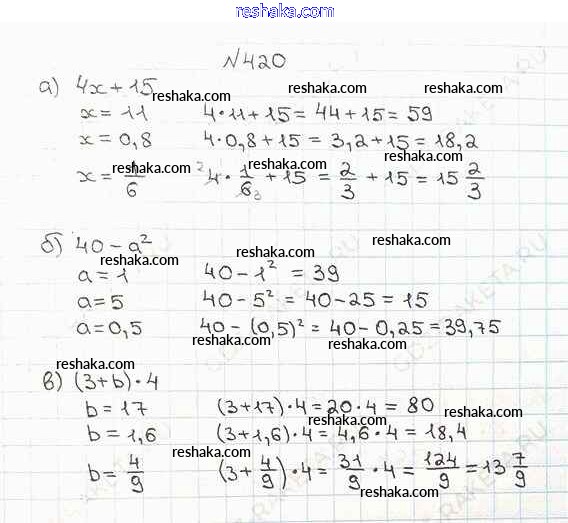 reshaka.com
№420
reshaka.com
а) 4x + 15 reshaka.com reshaka.com reshaka.com
x = 11 4·11 + 15 = 44 + 15 = 59
x = 0,8 4·0,8 + 15 = 3,2 + 15 = 18,2
reshaka.com reshaka.com reshaka.com
x = 1/6 ² 4 · 1/6 ₃ + 15 = 2/3 + 15 = 15 2/3
reshaka.com
б) 40 - a² reshaka.com reshaka.com
a = 1 40 - 1² = 39
a = 5 40 - 5² = 40 - 25 = 15
a = 0,5 40 - (0,5)² = 40 - 0,25 = 39,75
reshaka.com reshaka.com
reshaka.com
в) (3 + b) · 4 reshaka.com reshaka.com
b = 17 (3 + 17) · 4 = 20 · 4 = 80
reshaka.com reshaka.com
b = 1,6 (3 + 1,6) · 4 = 4,6 · 4 = 18,4
reshaka.com
b = 4/9 (3 + 4/9) · 4 = 31/9 · 4 = 124/9 = 13 7/9
reshaka.com